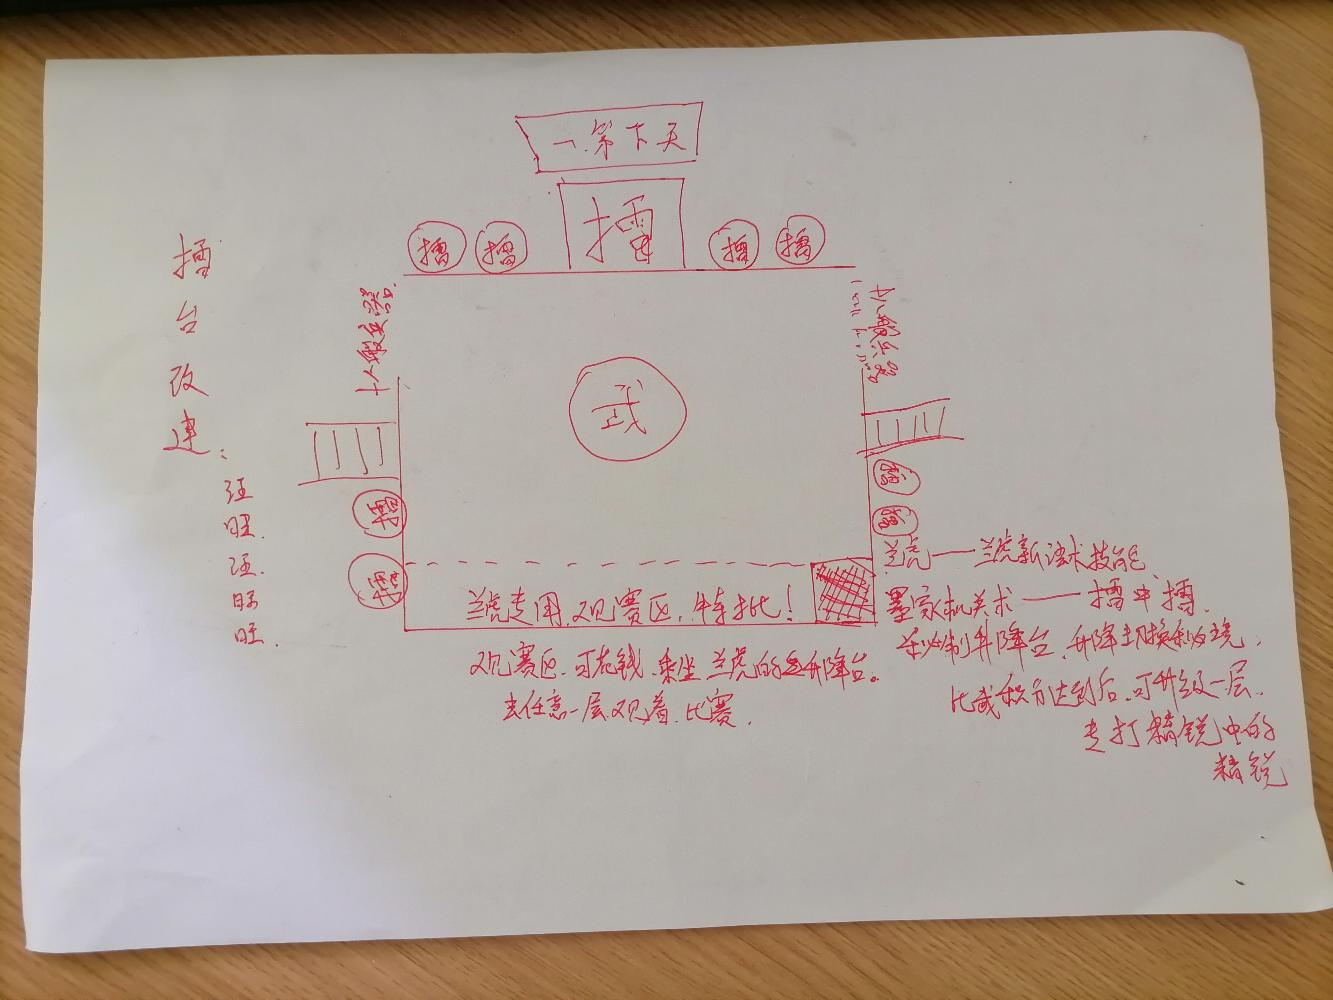 一第下天
擂
擂 擂 擂 擂
擂台改建
汪
旺
汪
旺
旺
十八般兵器
十八般兵器
武
擂
擂
擂
擂
兰虎——兰虎新法术技能
兰虎专用观赛区,特批!
墨家机关术——擂中擂
制升降台,升降切换
观赛区可花钱乘坐兰虎的升降台。
比武积分达到后,可升级一层,
去任意一层观看比赛.
专打精锐中的
精锐